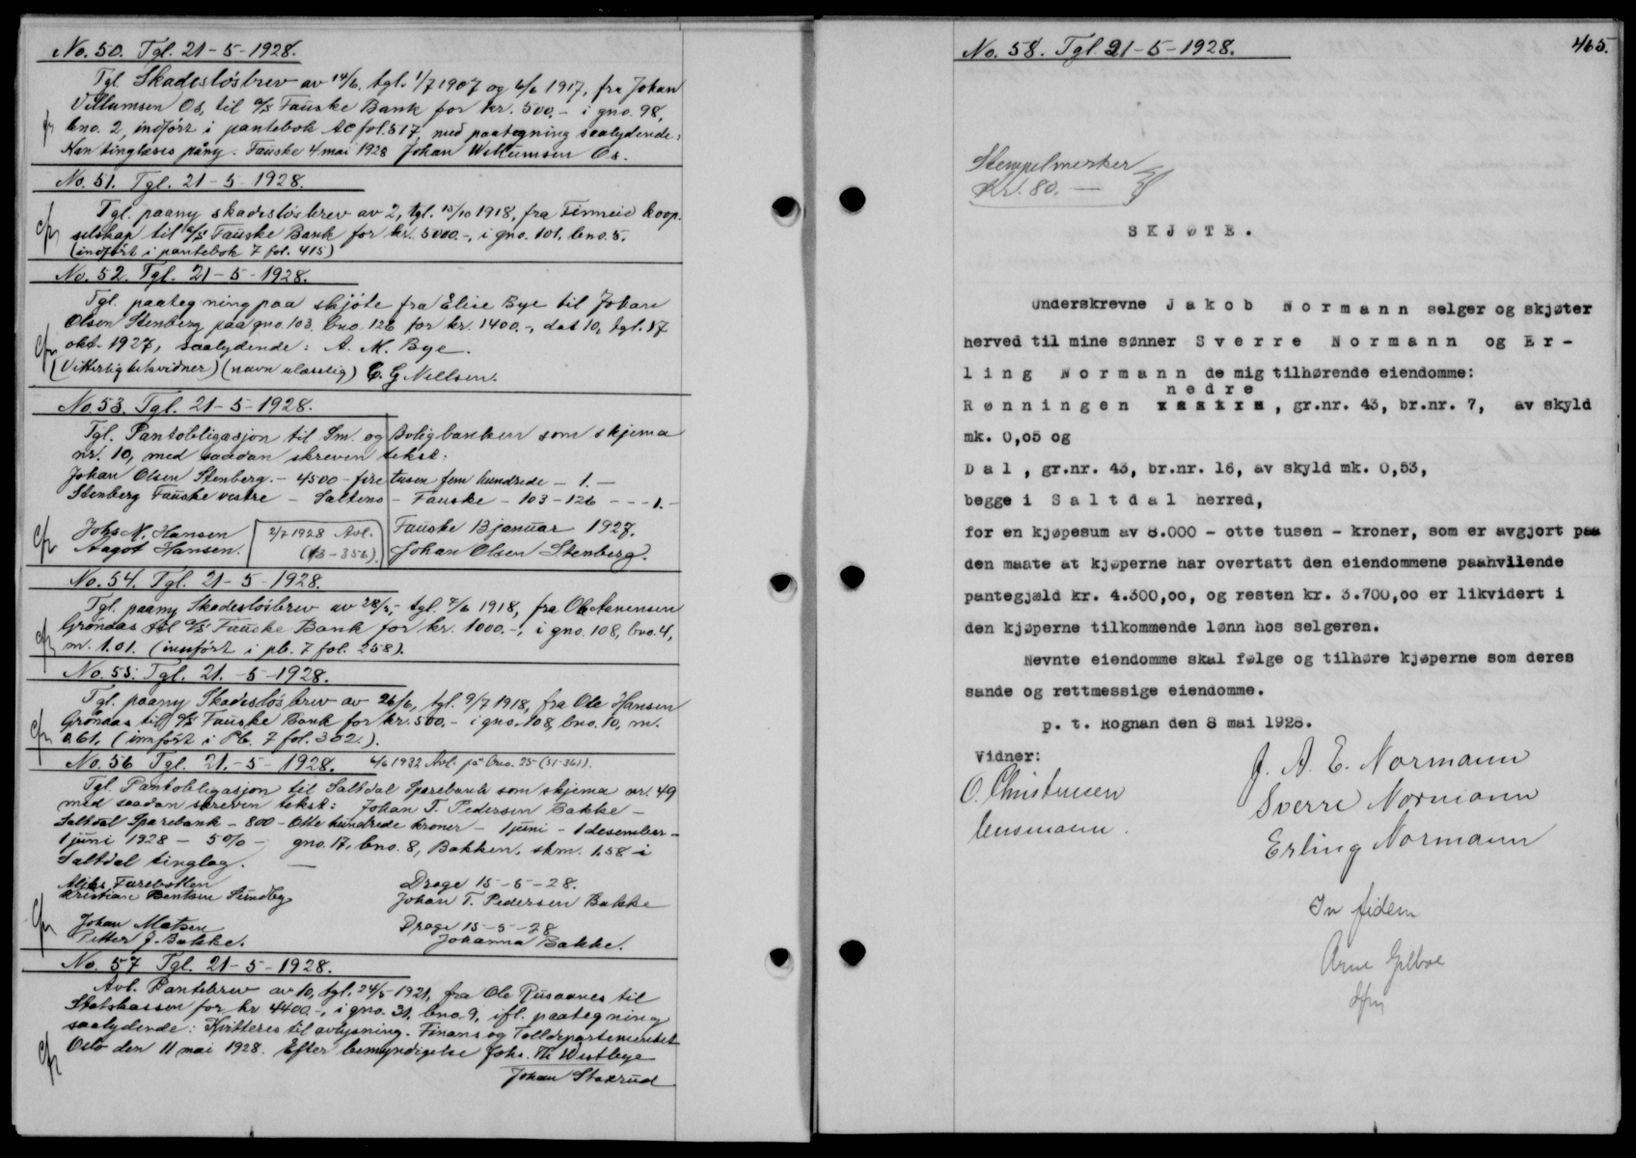 No. 50. Tgl. 21-5-1928.
Tgl. Skadesløsbrev av 14/6, tgl. 1/7 1907 og 4/6 1917, fra Johan
Villumsen Os, til A/S Fauske Bank for kr. 500,- i gno. 98,
bno. 2, indført i pantebok AC fol. 517, med paategning saalydende:
Kan tinglæses påny. Fauske 4 mai 1928 Johan Willumsen Os.
No. 51. Tgl. 21-5-1928.
Tgl. paany skadesløsbrev av 2, tgl. 15/10 1918, fra Finneid koop.
selskap til A/S Fauske Bank for kr. 5000.-, i gno. 101. bno. 5.
(indført i pantebok 7 fol. 415)
No. 52. Tgl. 21-5-1928.
Tgl. paategning paa skjøte fra Elise Bye til Johan
Olsen Stenberg paa gno. 103. bno. 126 for kr. 1400.-, dat 10, tgl. 17
okt. 1927, saalydende: A. M. Bye.
(Vitterlighetsvidner) (navn ulæselig) C. G Nillsen.
No 53. Tgl. 21-5-1928.
Tgl. Pantobligasjon til Sm. og Boligbanken som skjema
nr. 10, med saadan skreven tekst:
Johan Olsen Stenberg. - 4500 - fire tusen fem hundrede - 1. -
Stenberg Fauske vestre - Saltens - Fauske - 103-126 - - - 1. -
Fauske 13 januar 1927.
Johs N. Hansen 2/7 1928 Avl.
Aagot Hansen. (13-356). Johan Olsen Stenberg.
No. 54. Tgl. 21-5-1928.
Tgl. paany Skadesløsbrev av 28/5, tgl. 7/6 1918, fra Ole Hansen
Grøndas til A/S Fauske Bank for kr. 1000.-, i gno. 108, bno. 4,
m. 1.01. (innført i pb. 7 fol. 258).
No. 55: Tgl. 21.-5-1928.
Tgl. paany Skadesløsbrev av 26/6, tgl. 9/7 1918, fra Ole Hansen
Grøndas till A/S Fauske Bank for kr. 500.- i gno. 108, bno. 10, m.
0.61. (innført i Pb. 7 fol. 302.).
No. 56 Tgl. 21.-5-1928. 4/6 1932 Avl. på bno. 25 (31-361).
Tgl. Pantobligasjon til Saltdal Sparebank som skjema nr. 49
med saadan skreven tekst: Johan T. Pedersen Bakke -
Saltdal Sparebank - 800 - Otte hundrede kroner - 1 juni - 1 desember -
1 juni 1928 - 5% - gno. 17, bno. 8, Bakken, skm. 1.58 i
Saltdal tinglag.
Drage 15-5-28.
Kristian Bentsen Sundby Johan T. Pedersen Bakke
Johan Matsen Drage 15-5-28
Petter J. Bakke. Johanna Bakke.
No. 57 Tgl. 21-5-1928.
Avl. Pantebrev av 10, tgl. 24/5-1921, fra Ole Rusaanes til
Statskassen for kr 4400.-, i gno. 31, bno. 9, ifl. paategning
saalydende: Kvitteres til avlysning. Finans og Tolldepartementet
Oslo den 11 mai 1928. Efter bemyndigelse Johs. Th Westbye
Johan Staxrud
No. 58. Tgl. 21-5-1928. 465.
Stempelmerker
Kr. 80. -
SKJØTE.
Underskrevne Jakob Normann selger og skjøter
herved til mine sønner Sverre Normann og Er-
ling Normann de mig tilhørende eiendomme:
nedre
Rønningen, gr.nr. 43, br.nr. 7, av skyld
mk. 0,05 og
Dal, gr.nr. 43, br.nr. 16, av skyld mk. 0,53,
begge i Saltdal herred,
for en kjøpesum av 8.000 - otte tusen - kroner, som er avgjort paa
den maate at kjøperne har overtatt den eiendommene paahvilende
pantegjæld kr. 4.300,00, og resten kr. 3.700,00 er likvidert i
den kjøperne tilkommende lønn hos selgeren.
Nevnte eiendomme skal følge og tilhøre kjøperne som deres
sande og rettmessige eiendomme.
p. t. Rognan den 8 mai 1928.
Vidner: J. A. E. Normann
O. Christensen Sverre Normann
lensmann. Erling Normann
In fidem
Arne